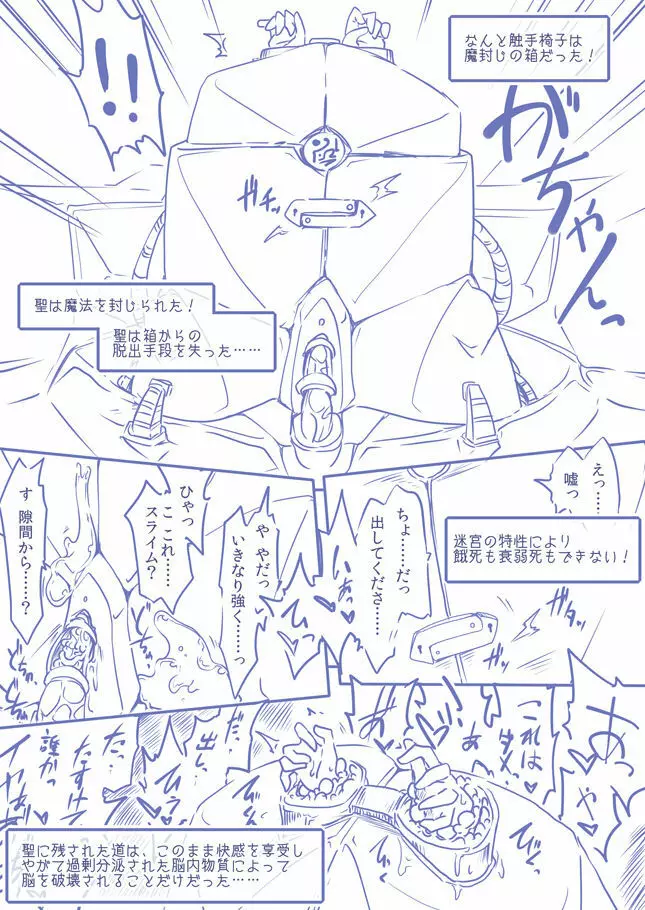 なんと触手椅子は
魔封じの箱だった！
！！
がちゃんっ
ガチッ
聖は魔法を封じられた！
聖は箱からの
脱出手段を失った……
えっ……
嘘っ
迷宮の特性により
餓死も衰弱死もできない！
ちょ……だっ
出してくださ……
ガタッ
や やだっ
いきなり強く……っ
ひゃっ
こ これ……
スライム？
す 隙間から……？
あっ
これは
ダメ
出し
だっ
たすけ
誰かっ
イヤぁ
聖に残された道は、このまま快感を享受し
やがて過剰分泌された脳内物質によって
脳を破壊されることだけだった……